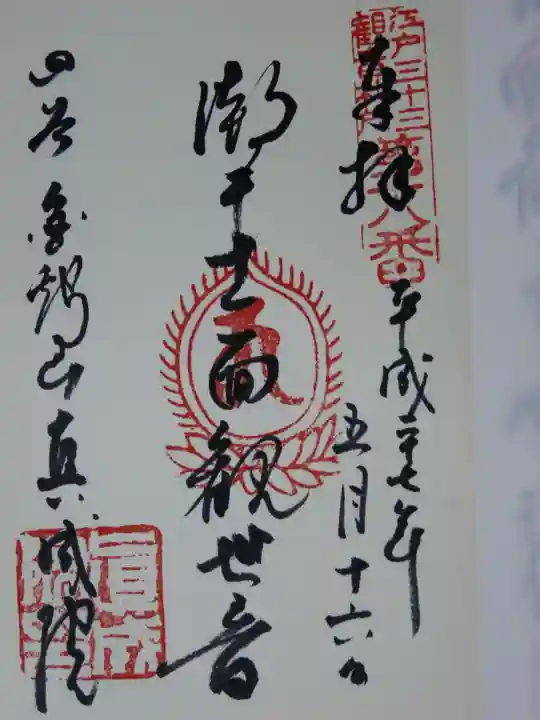 江戸三十三
観音札所
第十八番
奉拝
平成二十七年
五月十六日
潮干十一面観世音
四谷 金鶏山真成院
真成院